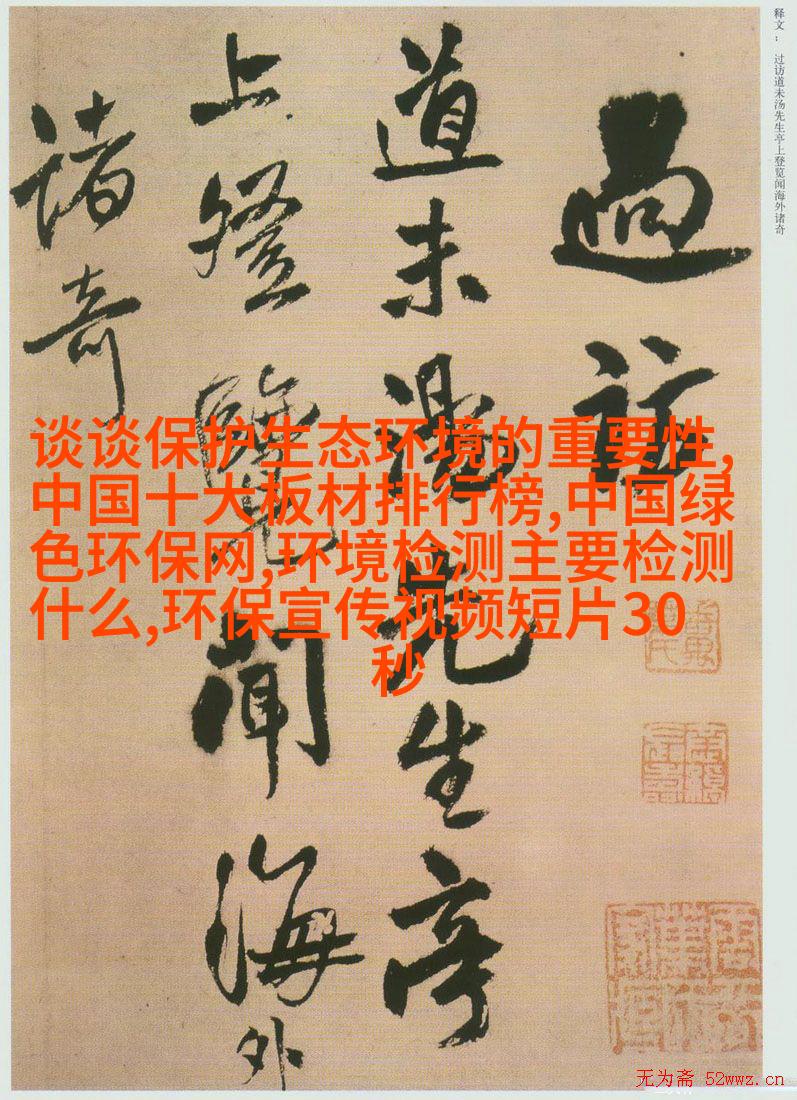 释文： 过访道未汤先生亭上登览闻海外诸奇
過訪
道未湯先生亭
上登覽聞海外
諸奇
谈谈保护生态环境的重要性,
中国十大板材排行榜,中国绿
色环保网,环境检测主要检测
什么,环保宣传视频短片30
秒
无为斋 52wwz.cn